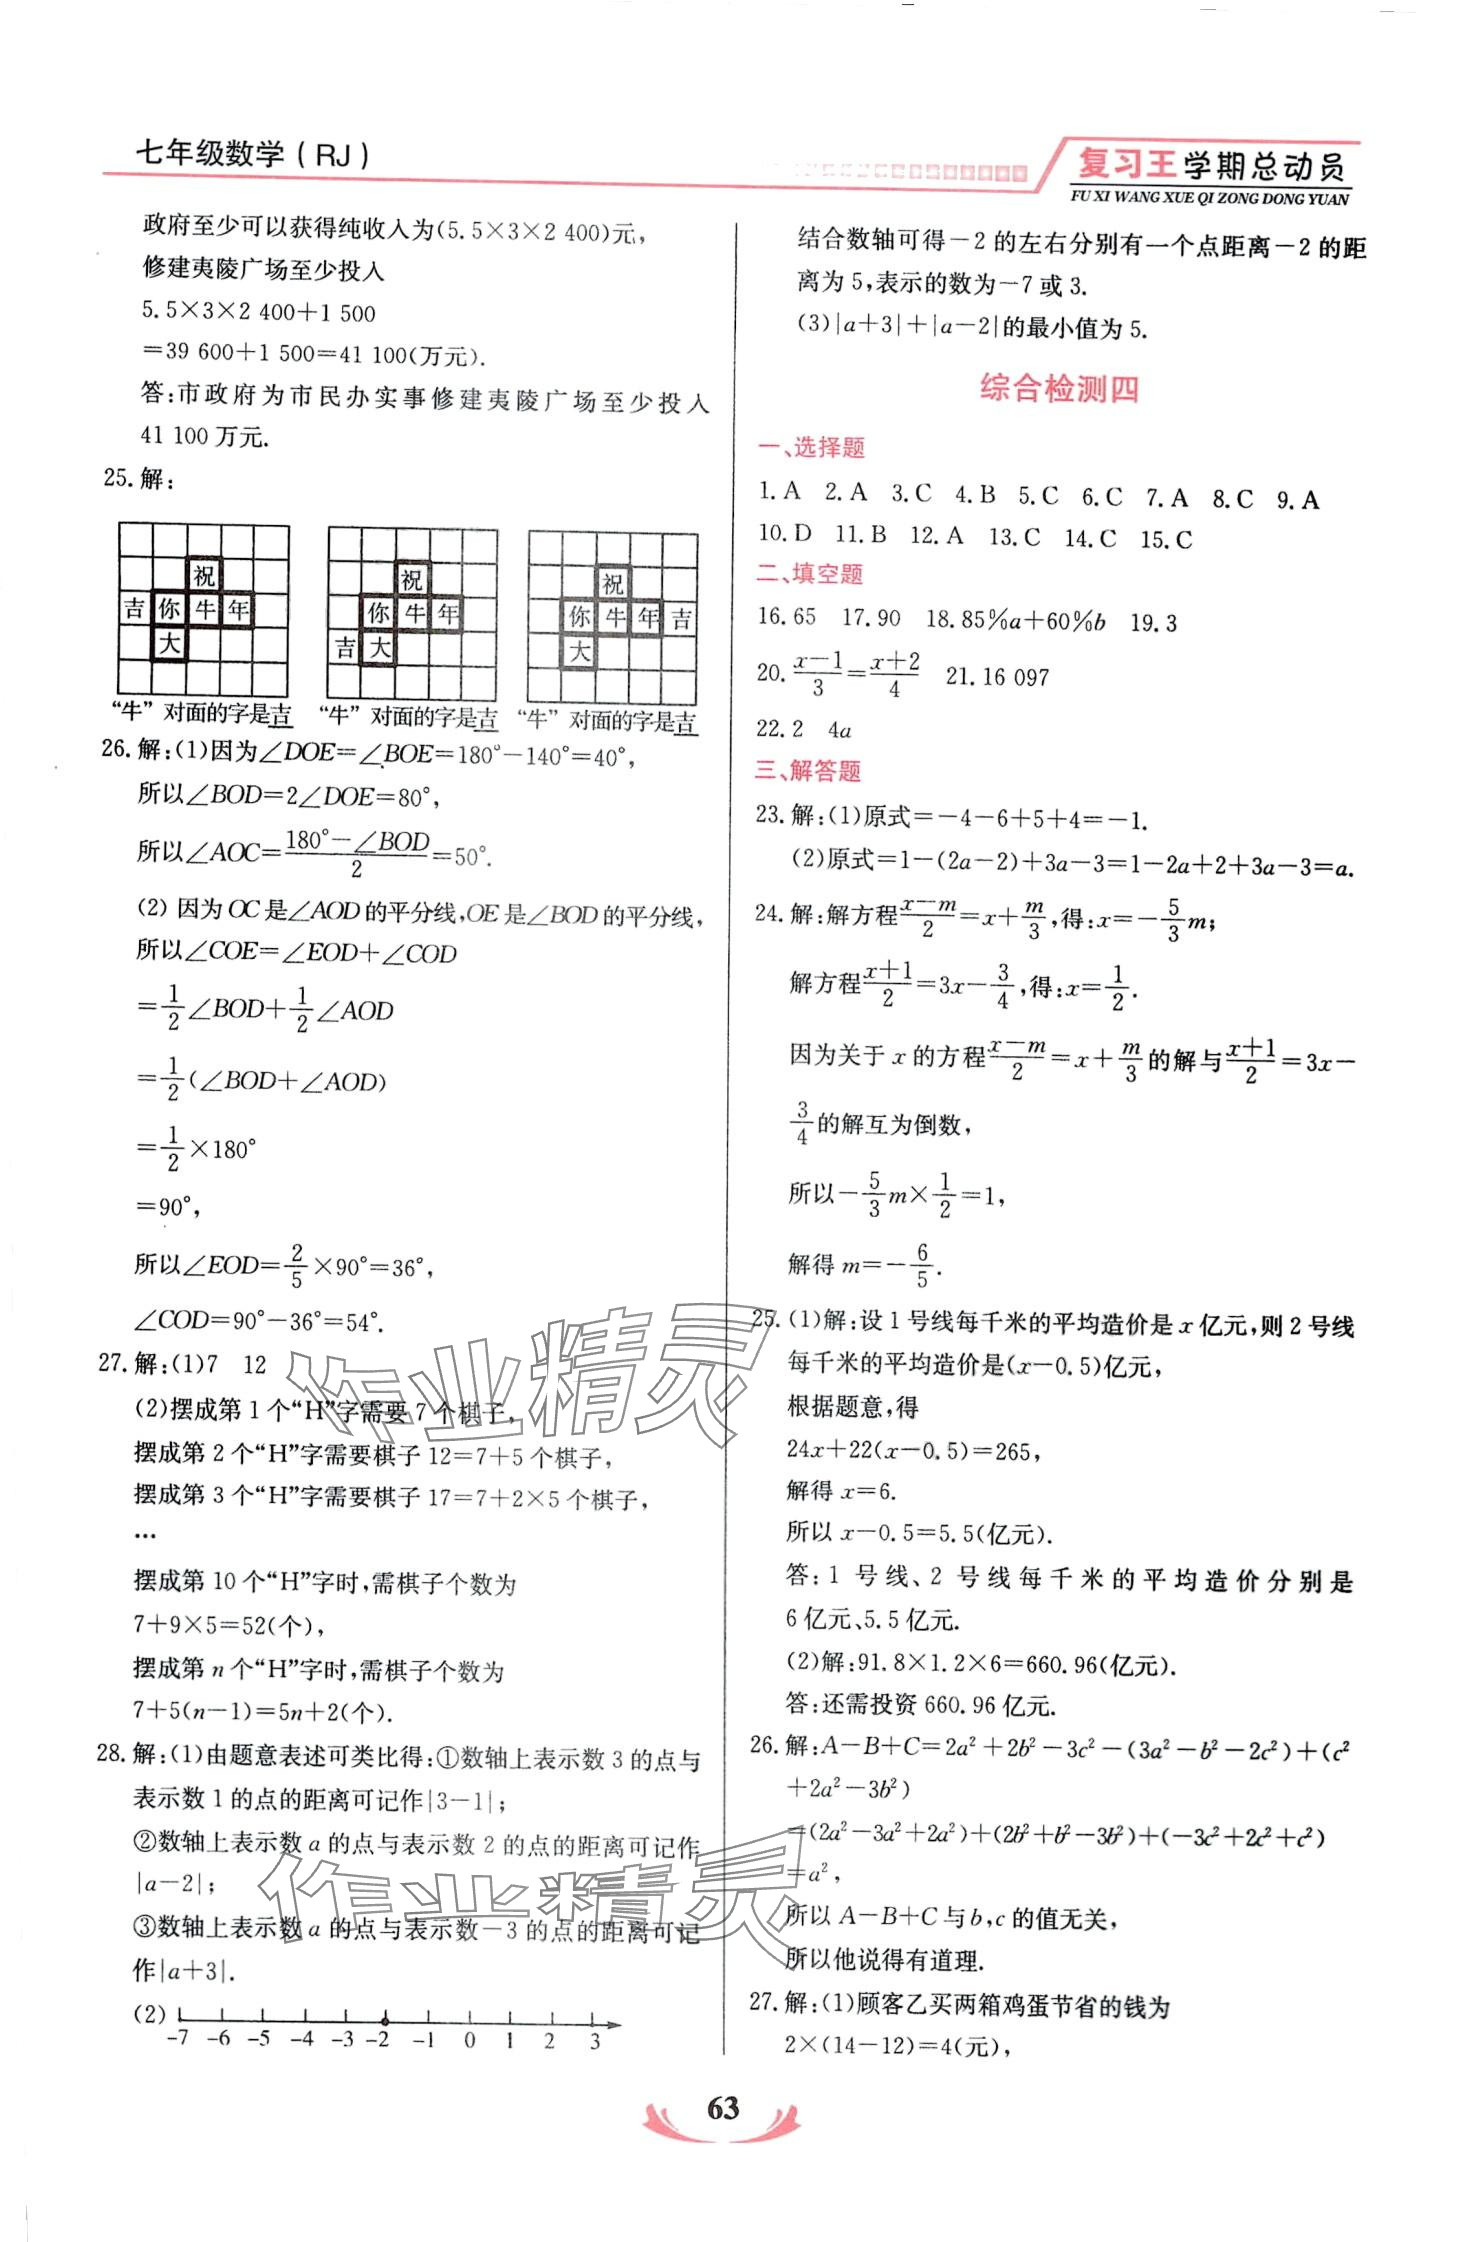 七年级数学（RJ）
复习王学期总动员
FU XI WANG XUE QI ZONG DONG YUAN
政府至少可以获得纯收入为(5.5×3×2 400)元,
修建夷陵广场至少投入
5.5×3×2 400+1 500
=39 600+1 500=41 100(万元).
答:市政府为市民办实事修建夷陵广场至少投入
41 100万元.
25.解:
祝
吉 你 牛 年
大
祝
你 牛 年
吉 大
祝
你 牛 年 吉
大
“牛”对面的字是吉 “牛”对面的字是吉 “牛”对面的字是吉
26.解:(1)因为∠DOE=∠BOE=180°-140°=40°,
所以∠BOD=2∠DOE=80°,
所以∠AOC=(180°-∠BOD)/2=50°.
(2) 因为OC是∠AOD的平分线,OE是∠BOD的平分线,
所以∠COE=∠EOD+∠COD
=1/2∠BOD+1/2∠AOD
=1/2(∠BOD+∠AOD)
=1/2×180°
=90°,
所以∠EOD=2/5×90°=36°,
∠COD=90°-36°=54°.
27.解:(1)7 12
(2)摆成第1个“H”字需要7个棋子,
摆成第2个“H”字需要棋子12=7+5个棋子,
摆成第3个“H”字需要棋子17=7+2×5个棋子,
…
摆成第10个“H”字时,需棋子个数为
7+9×5=52(个),
摆成第n个“H”字时,需棋子个数为
7+5(n-1)=5n+2(个).
28.解:(1)由题意表述可类比得:①数轴上表示数3的点与
表示数1的点的距离可记作|3-1|;
②数轴上表示数a的点与表示数2的点的距离可记作
|a-2|;
③数轴上表示数a的点与表示数-3的点的距离可记
作|a+3|.
(2)
-7 -6 -5 -4 -3 -2 -1 0 1 2 3
结合数轴可得-2的左右分别有一个点距离-2的距
离为5,表示的数为-7或3.
(3)|a+3|+|a-2|的最小值为5.
综合检测四
一、选择题
1.A 2.A 3.C 4.B 5.C 6.C 7.A 8.C 9.A
10.D 11.B 12.A 13.C 14.C 15.C
二、填空题
16.65 17.90 18.85%a+60%b 19.3
20.(x-1)/3=(x+2)/4 21.16 097
22.2 4a
三、解答题
23.解:(1)原式=-4-6+5+4=-1.
(2)原式=1-(2a-2)+3a-3=1-2a+2+3a-3=a.
24.解:解方程(x-m)/2=x+m/3,得:x=-5/3m;
解方程(x+1)/2=3x-3/4,得:x=1/2.
因为关于x的方程(x-m)/2=x+m/3的解与(x+1)/2=3x-
3/4的解互为倒数,
所以-5/3m×1/2=1,
解得m=-6/5.
25.(1)解:设1号线每千米的平均造价是x亿元,则2号线
每千米的平均造价是(x-0.5)亿元,
根据题意,得
24x+22(x-0.5)=265,
解得x=6.
所以x-0.5=5.5(亿元).
答:1号线、2号线每千米的平均造价分别是
6亿元、5.5亿元.
(2)解:91.8×1.2×6=660.96(亿元).
答:还需投资660.96亿元.
26.解:A-B+C=2a²+2b²-3c²-(3a²-b²-2c²)+(c²
+2a²-3b²)
=(2a²-3a²+2a²)+(2b²+b²-3b²)+(-3c²+2c²+c²)
=a²,
所以A-B+C与b,c的值无关,
所以他说得有道理.
27.解:(1)顾客乙买两箱鸡蛋节省的钱为
2×(14-12)=4(元),
作业精灵
作业精灵
63